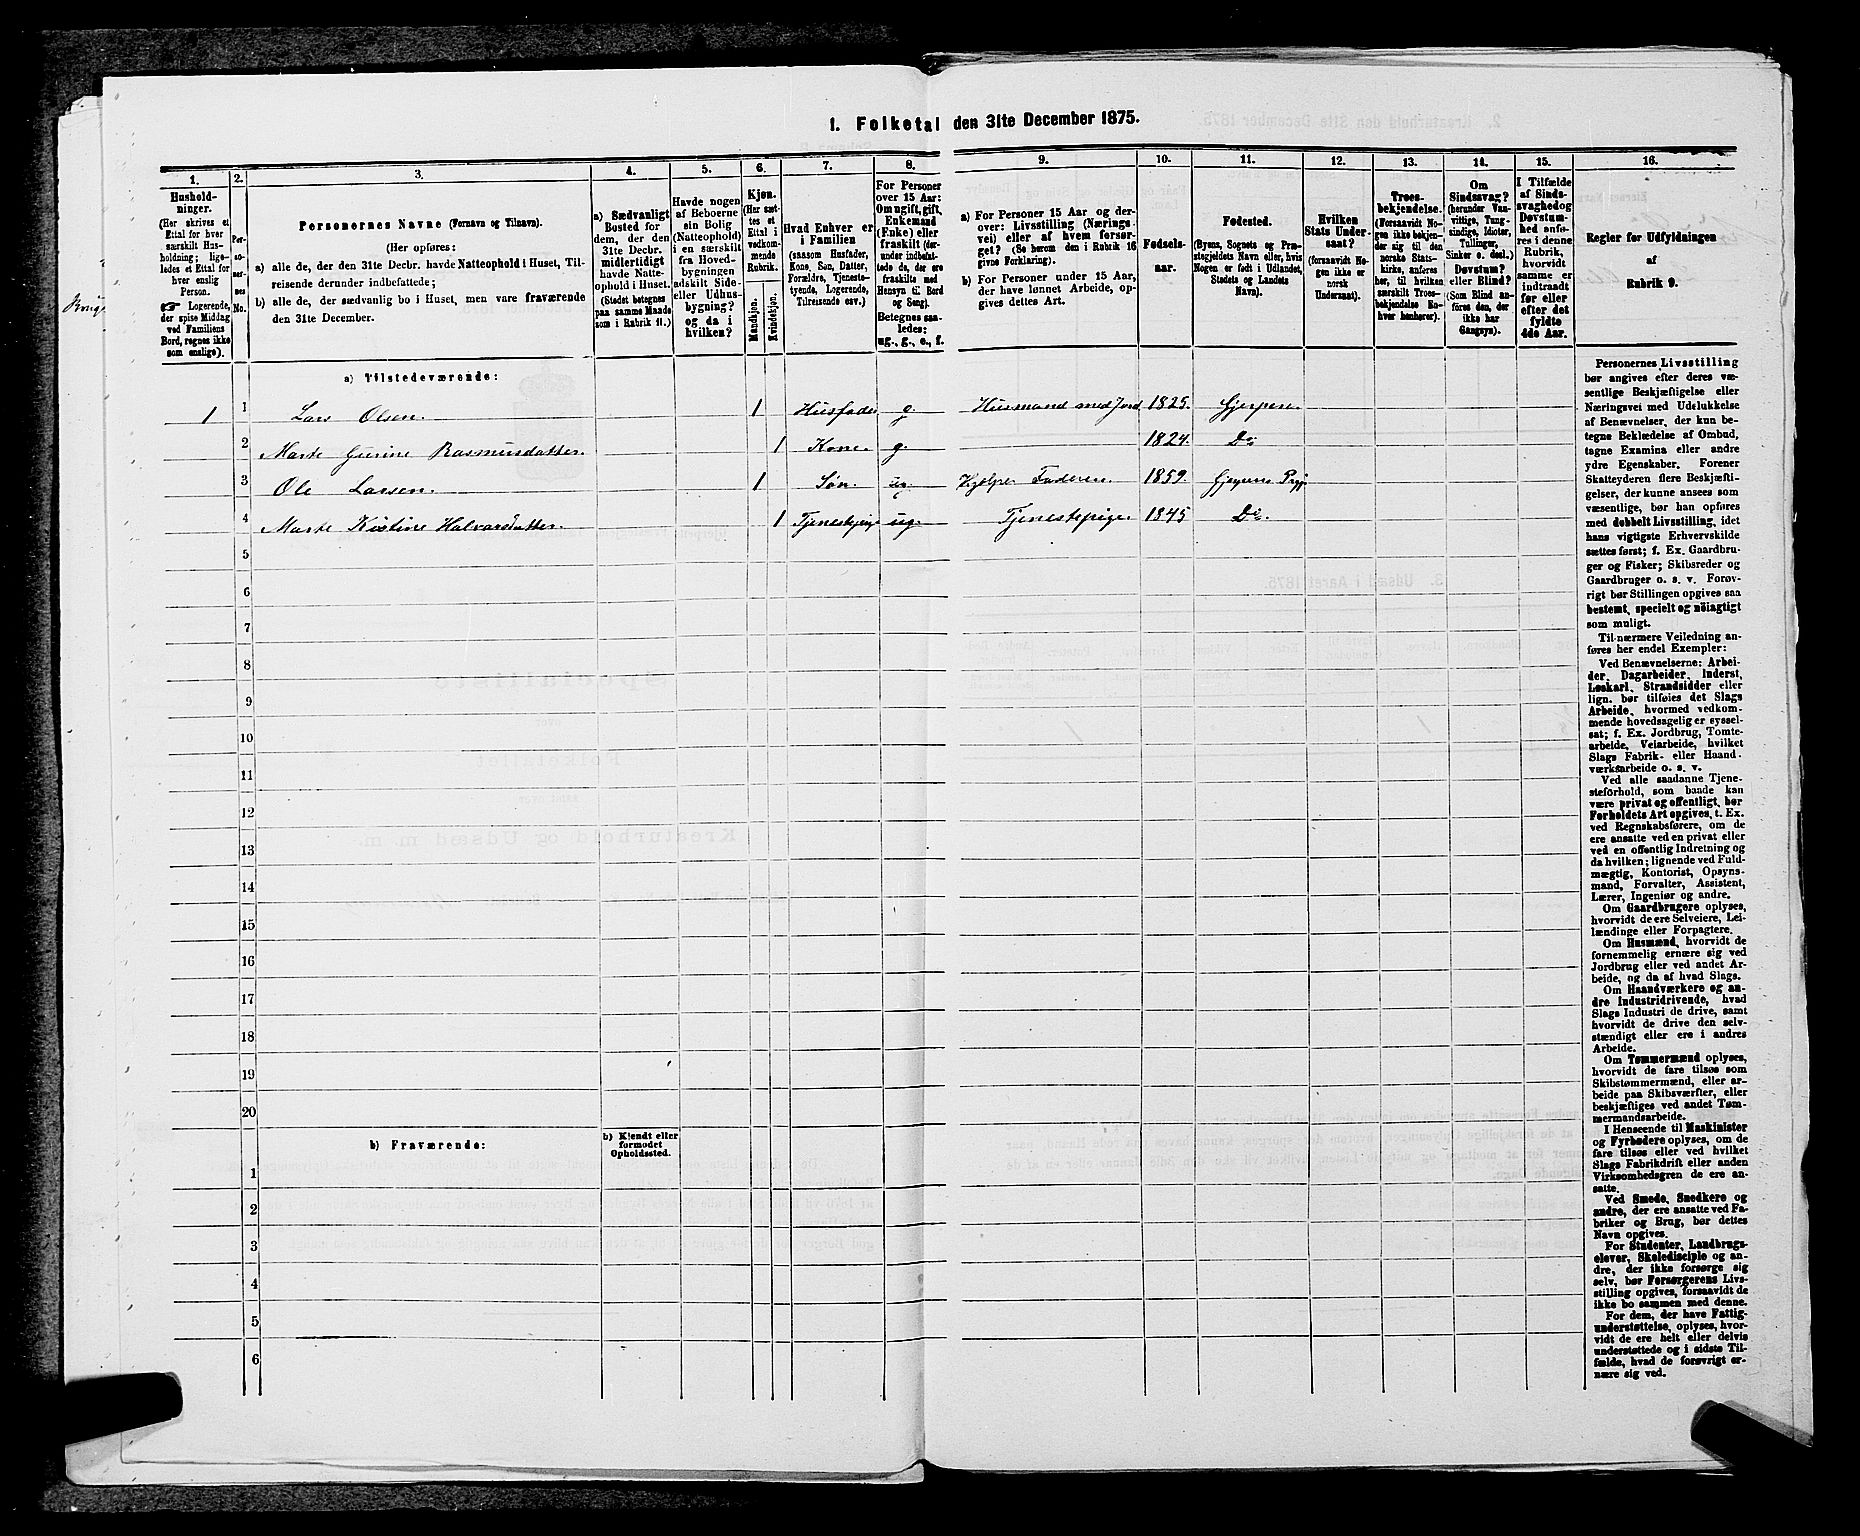 1. Folketal den 31te December 1875.
1.
2.
3.
4.
5.
6.
7.
8.
9.
10.
11.
12.
13.
14.
15.
16.
Husholdninger.
(Her skrives et
Ettal for hver
særskilt Husholdning;
ligeledes et Ettal for
hver enslig
Person.
☞ Logerende,
der spise Middag
ved Familiens
Bord, regnes ikke
som enslige).
Personernes
No.
Personernes Navne (Fornavn og Tilnavn).
(Her opføres:
a) alle de, der den 31te Decbr. havde Natteophold i Huset, Tilreisende derunder indbefattede;
b) alle de, der sædvanlig bo i Huset, men vare fraværende
den 31te December.)
a) Sædvanligt
Bosted for
dem, der den
31te Decbr.
midlertidigt
havde Natteophold i Huset.
(Stedet betegnes
paa samme Maade
som i Rubrik 11.)
Havde nogen
af Beboerne
sin Bolig
(Natteophold)
i en særskilt
fra Hovedbygningen
adskilt Side- eller Udhusbygning?
og da i
hvilken?
Kjøn.
(Her sættes et
Ettal i
vedkommende
Rubrik.
Mandkjøn.
Kvindekjøn.
Hvad Enhver er
i Familien
(saasom Husfader,
Kone, Søn, Datter,
Forældre, Tjenestetyende, Logerende,
Tilreisende osv.)
For Personer
over 15 Aar:
Om ugift, gift,
Enkemand
(Enke) eller
fraskilt (derunder indbefattede de, der ere
fraskilte med
Hensyn til Bord
og Seng).
Betegnes saaledes:
ug., g., e., f.
a) For Personer 15 Aar og derover: Livsstilling (Næringsvei) eller af hvem forsørget? (Se herom den i Rubrik 16
givne Forklaring).
b) For Personer under 15 Aar,
der have lønnet Arbeide, opgives dettes Art.
Fødselsaar.
Fødested.
(Byens, Sognets og Præstegjeldets Navn eller, hvis
Nogen er født i Udlandet,
Stedets og Landets
Navn).
Hvilken
Stats Undersaat?
(forsaavidt Nogen ikke er
norsk
Undersaat).
Troesbekjendelse.
(Forsaavidt Nogen ikke bekjender sig til den
norske Statskirke, anføres
her, til hvilken
særskilt Troesbekjendelse Enhver henhører).
Om
Sindssvag?
(herunder Vanvittige, Tungsindige, Idioter,
Tullinger,
Sinker o. desl.)
Døvstum?
eller Blind?
(Som Blind anføres den, der
ikke har
Gangsyn).
I Tilfælde
af Sindssvaghed og
Døvstumhed anføres i denne
Rubrik,
hvorvidt
samme er
indtraadt
før eller
efter det
fyldte
4de Aar.
Regler for Udfyldningen
af
Rubrik 9.
a) Tilstedeværende:
1 1 Lars Olsen. 1 Husfader g. Husmand med Jord 1825. Gjerpen.
2 Marte Gurine Rasmusdatter. 1 Kone. g. 1824. Do
3 Ole Larsen. 1 Søn. ug. Hjelper Faderen. 1859. Gjerpens Pgj.
4 Marte Kistine Halvorsdatter. 1 Tjenestepige ug. Tjenestepige. 1845 Do.
5
6
7
8
9
10
11
12
13
14
15
16
17
18
19
20
b) Fraværende:
b) Kjendt eller
formodet
Opholdssted.
1
2
3
4
5
6
Personernes Livsstilling
bør angives efter deres væsentlige Beskjæftigelse eller
Næringsvei med Udelukkelse
af Benævnelser, der kun betegne Beklædelse af Ombud,
tagne Examina eller andre
ydre Egenskaber. Forener
Skatteyderen flere Beskjæftigelser, der kunne ansees som
væsentlige, bør han opføres
med dobbelt Livsstilling, idet
hans vigtigste Erhvervskilde
sættes først; f. Ex. Gaardbruger og Fisker; Skibsreder og
Gaardbruger o. s. v. Forøvrigt bør Stillingen opgives saa
bestemt, specielt og nöiagtigt
som muligt.
Til nærmere Veiledning anføres her endel Exempler:
Ved Benævnelserne: Arbeider, Dagarbeider, Inderst,
Løskarl, Strandsidder eller
lign. bør tilføies det Slags
Arbeide, hvormed vedkommende hovedsagelig er sysselsat; f. Ex. Jordbrug, Tomtearbeide, Veiarbeide, hvilket
Slags Fabrik- eller Haandværksarbeide o. s. v.
Ved alle saadanne Tjenesteforhold, som baade kan
være privat og offentligt, bør
Forholdets Art opgives, t. Ex.
ved Regnskabsførere, om de
ere ansatte ved en privat eller
ved en offentlig Indretning og
da hvilken; lignende ved Fuldmægtig, Kontorist, Opsynsmand, Forvalter, Assistent,
Lærer, Ingeniør og andre.
Om Gaardbrugere oplyses,
hvorvidt de ere Selveiere, Leilændinge eller Forpagtere.
Om Husmænd, hvorvidt de
fornemmelig ernære sig ved
Jordbrug eller ved andet Arbeide, og da af hvad Slags.
Om Haandværkere og andre Industridrivende, hvad
Slags Industri de drive, samt
hvorvidt de drive den selvstændigt eller ere i andres
Arbeide.
Om Tømmermænd oplyses,
hvorvidt de fare tilsøs som
Skibstømmermænd, eller arbeide paa Skibsværfter, eller
beskjæftiges ved andet Tømmermandsarbeide.
I Henseende til Maskinister
og Fyrbødere oplyses, om de
fare tilsøs eller ved hvilket
Slags Fabrikdrift eller anden
Virksomhedsgren de ere ansatte.
Ved Smede, Snedkere og
andre, der ere ansatte ved Fabriker og Brug, bør dettes
Navn opgives.
For Studenter, Landbrugselever, Skoledisciple og andre, der ikke forsørge sig
selv, bør Forsørgerens Livsstilling opgives, forsaavidt de
ikke bo sammen med denne.
For dem, der have Fattigunderstøttelse, oplyses, hvorvidt de ere helt eller delvis
understøttede og i sidste Tilfælde, hvad de forøvrigt ernære sig ved.